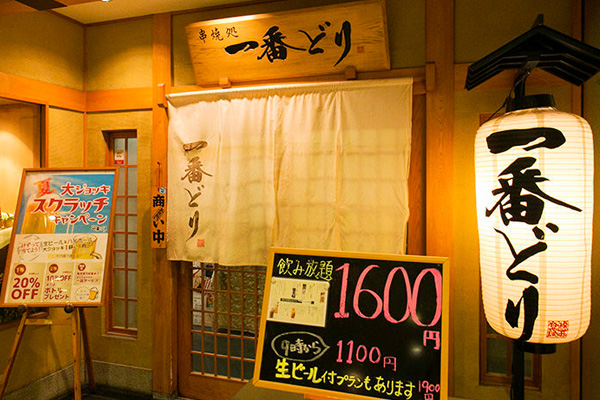 串焼処
一番どり
一番どり
商い中
夏 大ジョッキ
スクラッチ
キャンペーン
20%
OFF
プレゼント
飲み放題
1600円
9時から
1100円
生ビール付プランもあります 1900円
一番どり